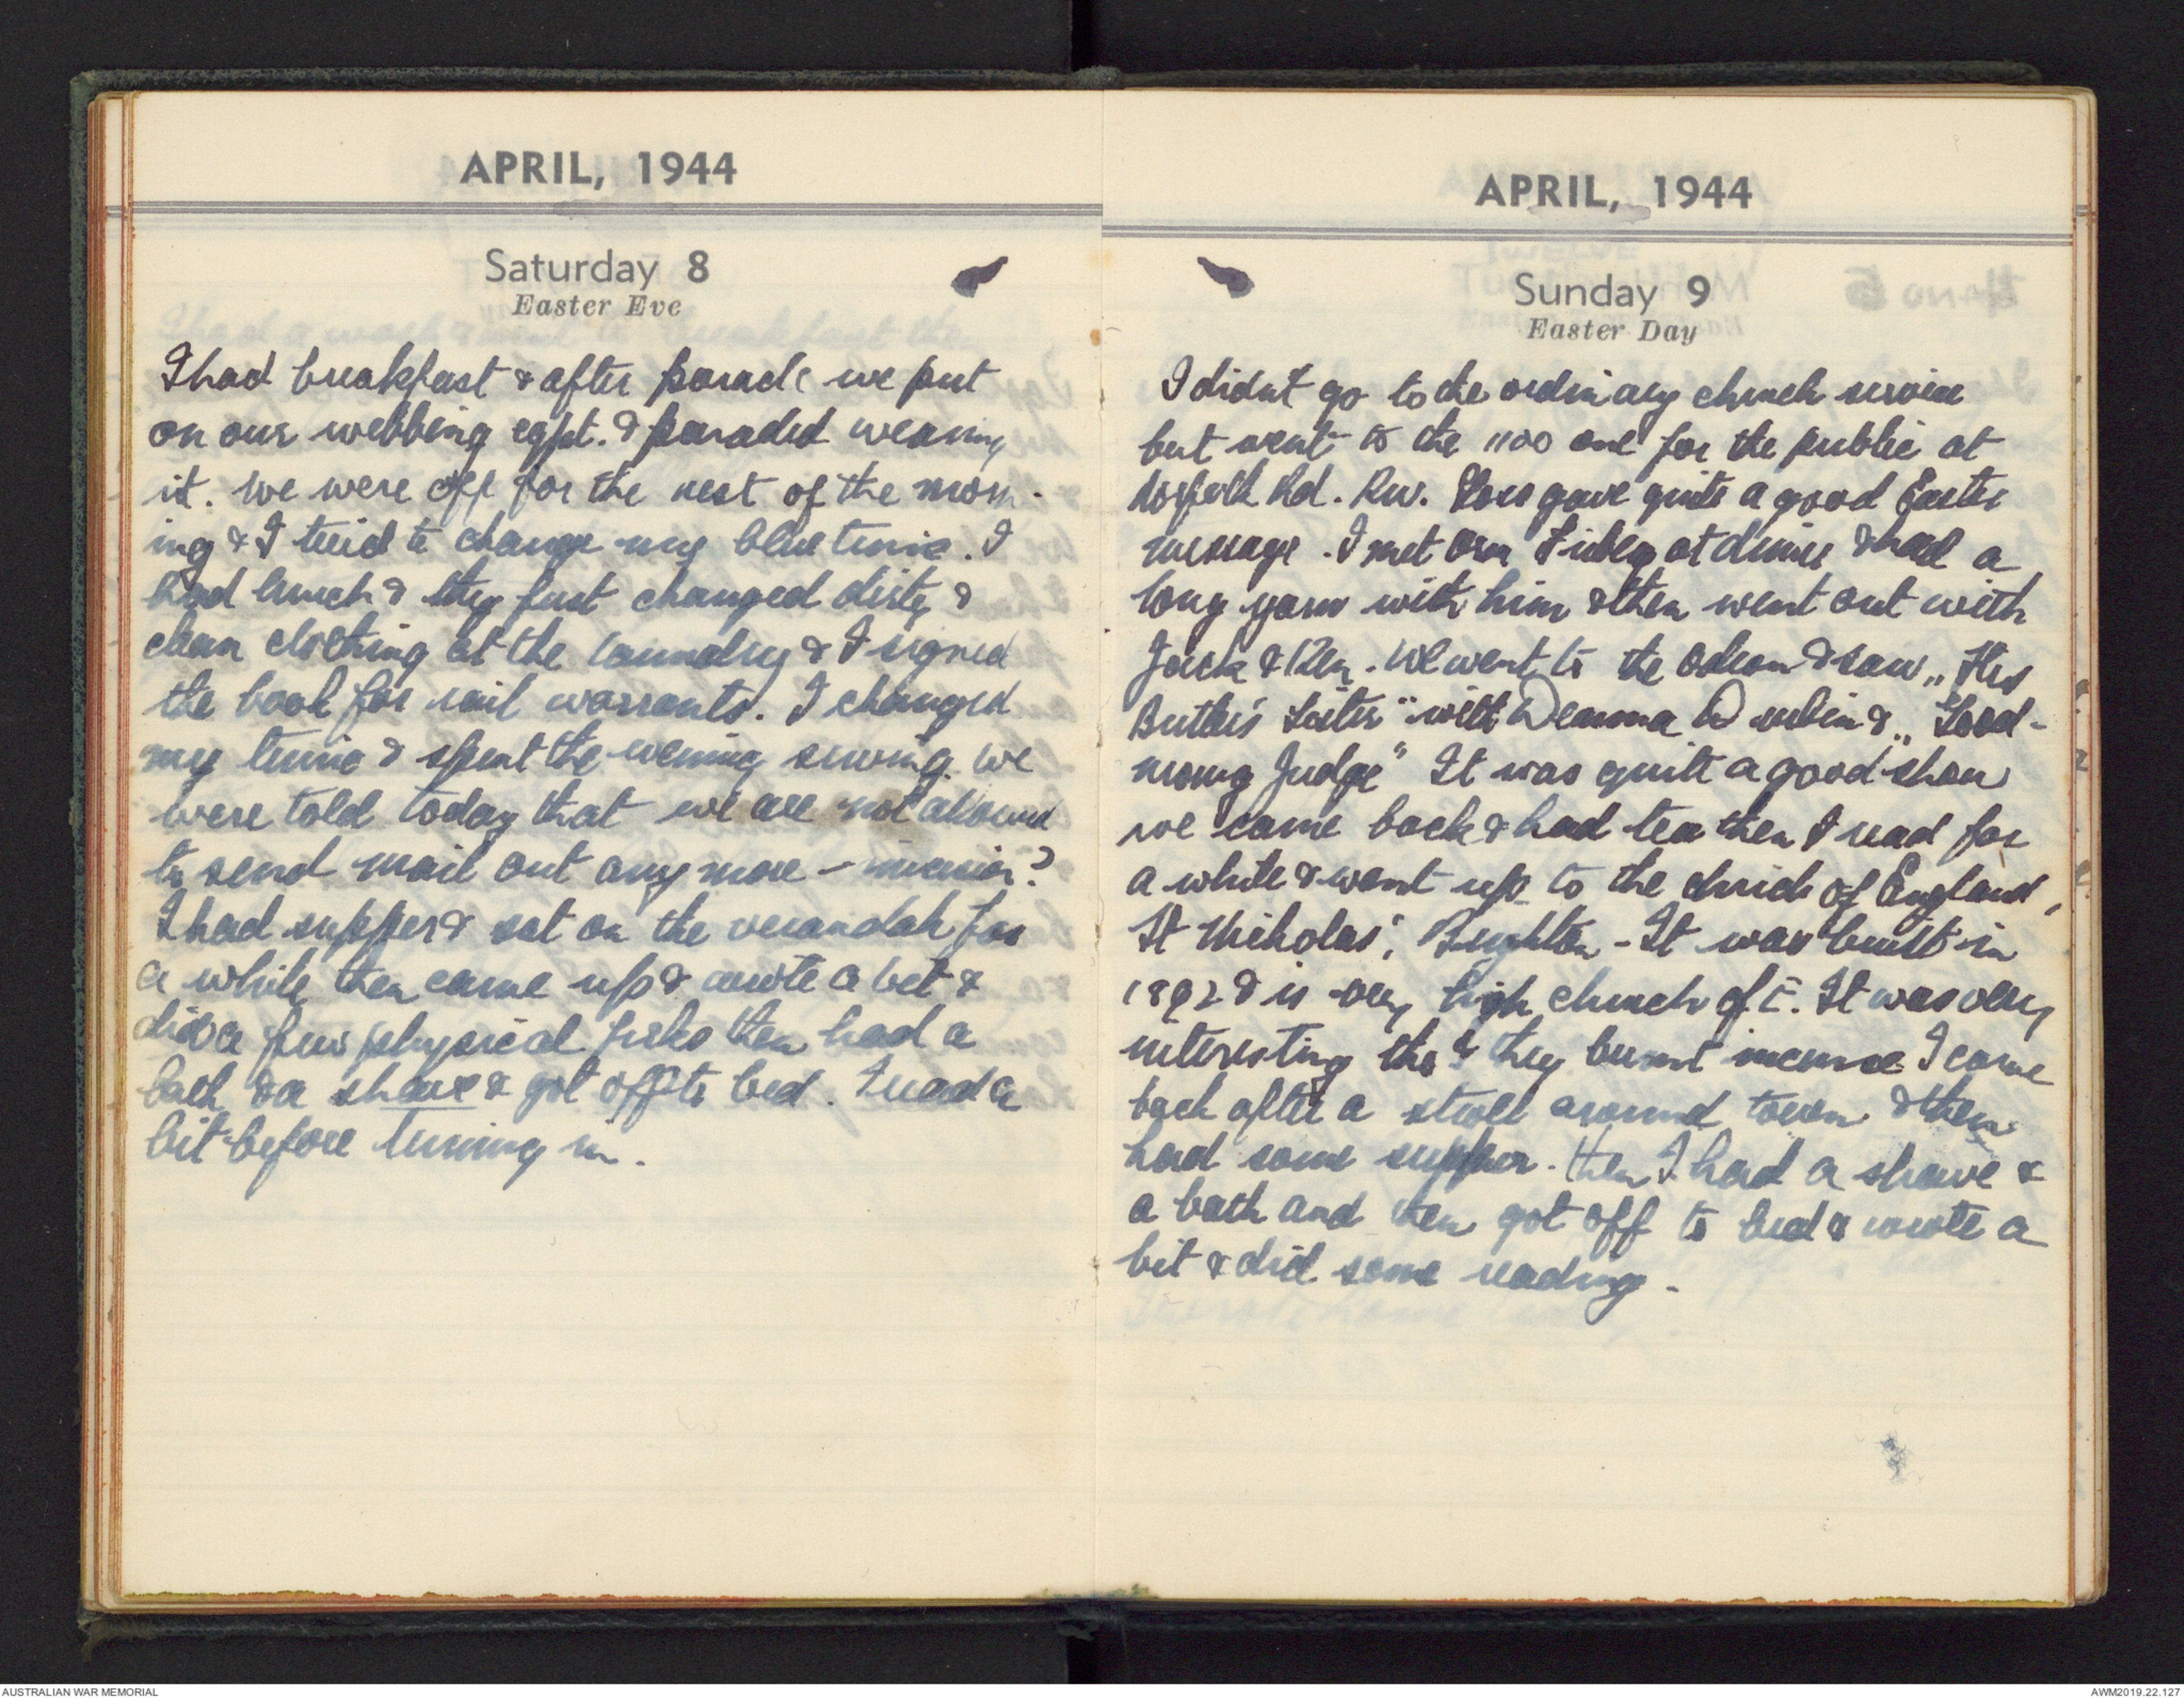 APRIL, 1944
Saturday 8
Easter Eve
I had breakfast & after parade we put
on our webbing eqpt. & paraded wearing
it. We were off for the rest of the morn-
ing & I tried to change my blue tunic. I
had lunch & they just changed dirty &
clean clothing at the laundry & I signed
the book for rail warrants. I changed
my tunic & spent the evening sewing. We
were told today that we are not allowed
to send mail out any more - invasion?
I had supper & sat on the verandah for
a while then came up & wrote a bit &
did a few physical jerks then had a
bath & a shave & got off to bed. I read a
bit before turning in.
APRIL, 1944
Sunday 9
Easter Day
I didn't go to the ordinary church service
but went to the 1100 one for the public at
Norfolk Rd. Rev. gave quite a good Easter
message. I met at dinner & had a
long yarn with him & then went out with
Jack & Ken. We went to the Odeon & saw "His
Butler's Sister" with Deanna Durbin & "Good-
morng Judge" It was quite a good show
we came back & had tea then I read for
a while & went up to the church of England,
St Nicholas', Brighton - It was built in
1892 & is very high church of E. It was very
interesting tho' & they burnt incense I came
back after a stroll around town & then
had some supper. Then I had a shave &
a bath and then got off to bed & wrote a
bit & did some reading.
AUSTRALIAN WAR MEMORIAL
AWM2019.22.127